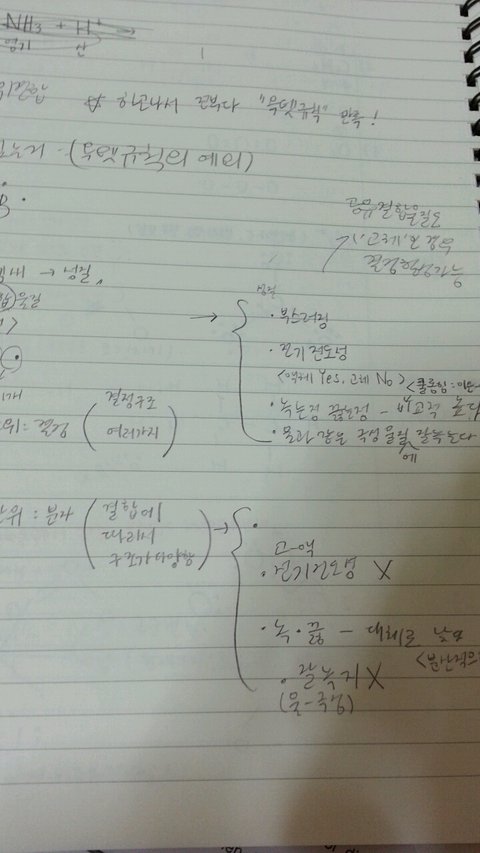 NH3 + H+
염기 산
☆ 하고나서 모두다 "옥텟규칙" 만족!
(옥텟규칙의 예외)
공유결합물질도
'고체'로 경우
결정형성가능
→ 성질
성질
→ · 부스러짐
· 전기 전도성
<액체 Yes, 고체 No>
· 녹는점 끓는점 - 비교적 높다
· 물과 같은 극성 물질에 잘녹는다
단위: 결정 ( 결정구조
여러가지 )
단위 : 분자 ( 결합에
따라서
구조가다양함 ) →
·
고 액
· 전기전도성 X
· 녹·끓 - 대체로 낮다
· 잘녹지X
(물-극성)